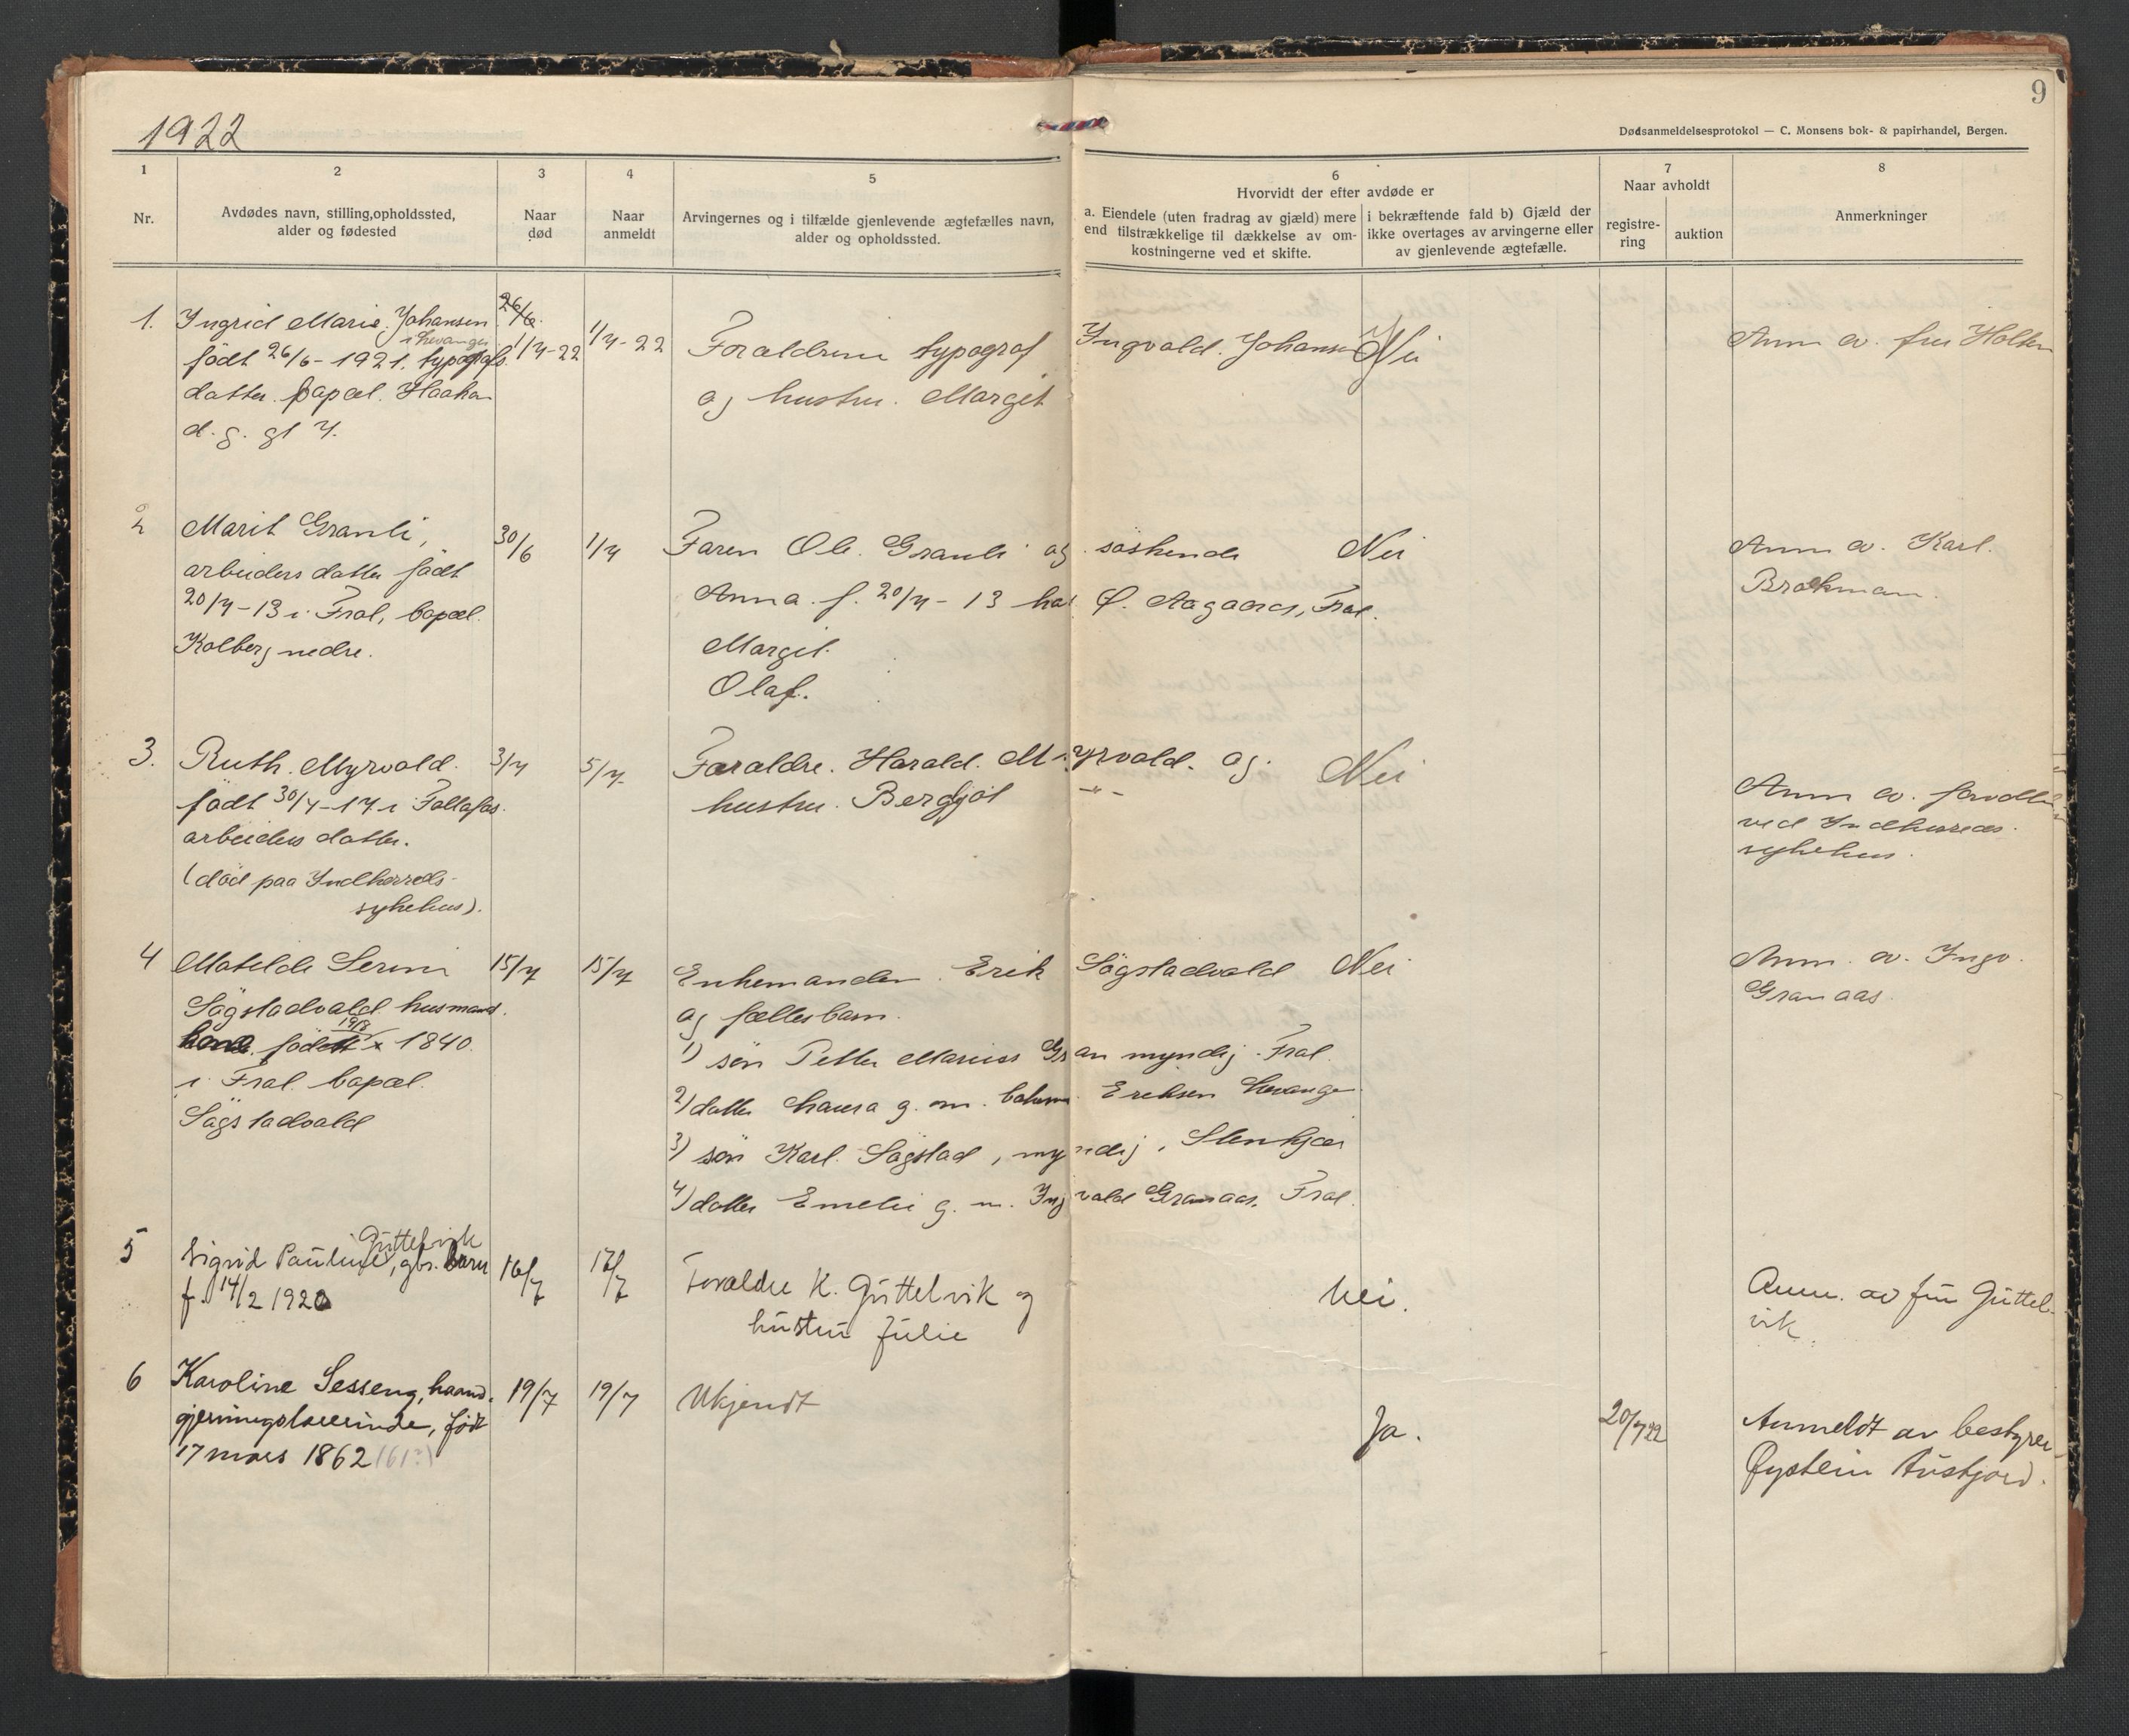 1922
9
Dødsanmeldelsesprotokol — C. Monsens bok- & papirhandel, Bergen.
1
Nr.
2
Avdødes navn, stilling, opholdssted,
alder og fødested
3
Naar
død
4
Naar
anmeldt
5
Arvingernes og i tilfælde gjenlevende ægtefælles navn,
alder og opholdssted.
6
Hvorvidt der efter avdøde er
a. Eiendele (uten fradrag av gjæld) mere
end tilstrækkelige til dækkelse av om-
kostningerne ved et skifte.
i bekræftende fald b) Gjæld der
ikke overtages av arvingerne eller
av gjenlevende ægtefælle.
7
Naar avholdt
registre-
ring
auktion
8
Anmerkninger
1. Ingrid Marie Johansen
født 26/6 - 1921. typografs
datter. bopæl. Haakon
d. g. gt 7.
26/6
1/7-22
1/7-22
Forældrene typograf Ingvald Johansen
og hustru. Margit
Nei
Anm av. fru Holten
2 Marit Granli,
arbeiders datter født
20/7-13 i Frol, bopæl.
Kolberg nedre.
30/6
1/7
Faren Ole Granli og søskende
Anna f. 20/7 - 13 hos O. Aagaard, Frol.
Margit.
Olaf.
Nei
Anm av. Karl.
Brokman.
3. Ruth Myrvold.
født 30/7-17 i Follafos.
arbeiders datter.
(død paa Indherreds-
sykehus).
3/7
5/7
Forældre. Harald. Myrvold. og
hustru. Bergljot -"-
Nei
Anm av.
ved Indherreds
sykehus.
4 Matilde Serine
Søgstadvald husmands
født 19/8 1840.
i Frol bopæl.
Søgstadvald
15/7
15/7
Enkemanden Erik Søgstadvald
og fællesbarn.
1) søn Petter Marius Gran myndig. Frol.
2) datter Laura g. m. Eriksen Levanger
3) søn Karl Søgstad, myndig, Stenkjær
4) datter Emelie g. m. Ingvald Granaas. Frol.
Nei
Anm. av. Ingv.
Granaas.
5 Sigrid Pauline Güttelvik, gbr. barn
f. 14/2 1920
16/7
17/7
Forældre K. Güttelvik og
hustru Julie
Nei.
Anm. av fru Güttel-
vik.
6 Karoline Sesseng, haand-
gjerningslærerinde, født
17 mars 1862 (61?)
19/7
19/7
Ukjendt
Ja.
20/7 22
Anmeldt av bestyrer
Øystein Austfjord.